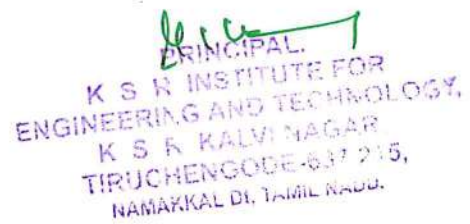 PRINCIPAL.
K S R INSTITUTE FOR
ENGINEERING AND TECHNOLOGY,
K S R KALVI NAGAR
TIRUCHENGODE-637 215,
NAMAKKAL DI, TAMIL NADU.